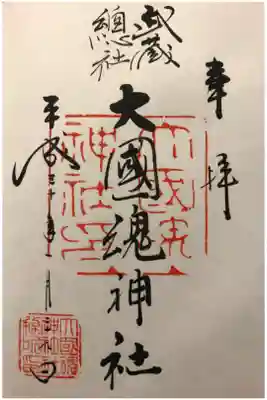 奉拝
武蔵
總社
大國魂神社
平成三十年一月三十日